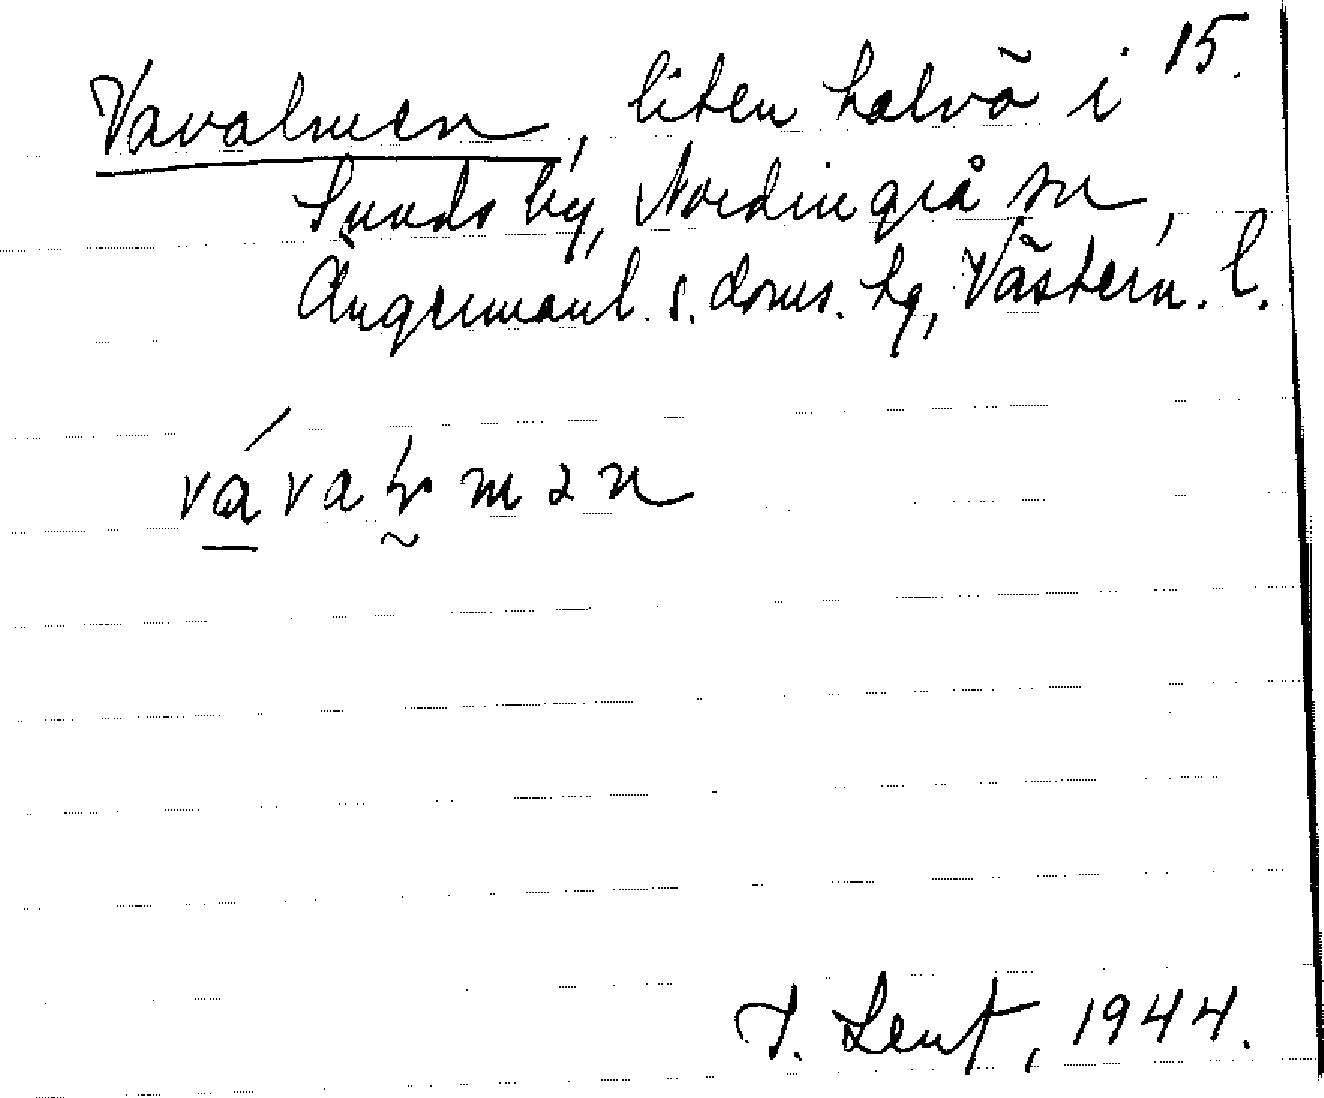 15.
Vavalmen, liten halvö i
Sunds by, Nordingrå sn,
Ångermanl. s. doms. hg, Västern. l.
vávaɽmən
J. Lent, 1944.